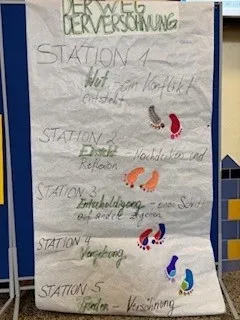 DER WEG
DER VERSÖHNUNG
STATION 1
Wut – ein Konflikt
entsteht
STATION 2
– Nachdenken und
Reflexion
STATION 3
Entschuldigung – einen Schritt
aufeinander zugehen
STATION 4
Vergebung
STATION 5
Frieden – Versöhnung